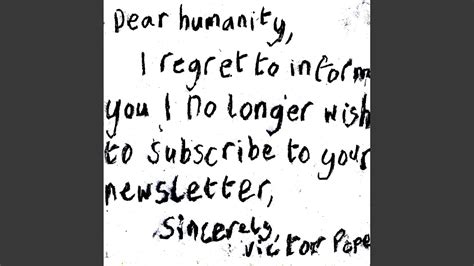 Dear humanity,
I regret to inform
you I no longer wish
to subscribe to your
newsletter,
sincerely,
victor Pope